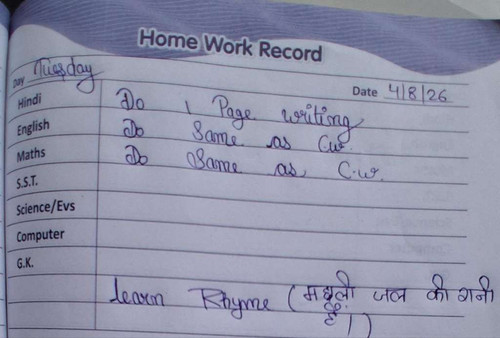 Home Work Record
Day Tuesday
Date 4/8/26
Hindi Do 1 Page writing
English Do Same as Cw.
Maths Do Same as C.w.
S.S.T.
Science/Evs
Computer
G.K.
learn Rhyme (मछली जल की रानी
है।)